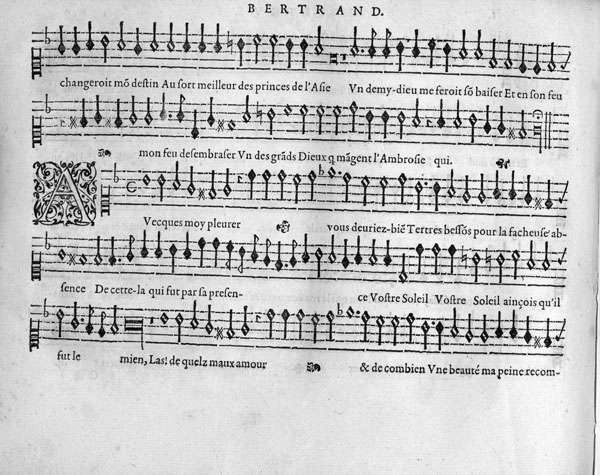 BERTRAND.
changeroit mõ destin Au sort meilleur des princes de l'Asie Vn demy-dieu me feroit sõ baiser Et en son feu
mon feu desembraser Vn des grãds Dieux q mãgent l'Ambrosie qui.
A Vecques moy pleurer vous deuriez-biẽ Tertres bessõs pour la facheuse ab-
sence De cette-la qui fut par sa presen- ce Vostre Soleil Vostre Soleil ainçois qu'il
fut le mien, Las! de quelz maux amour & de combien Vne beauté ma peine recom-